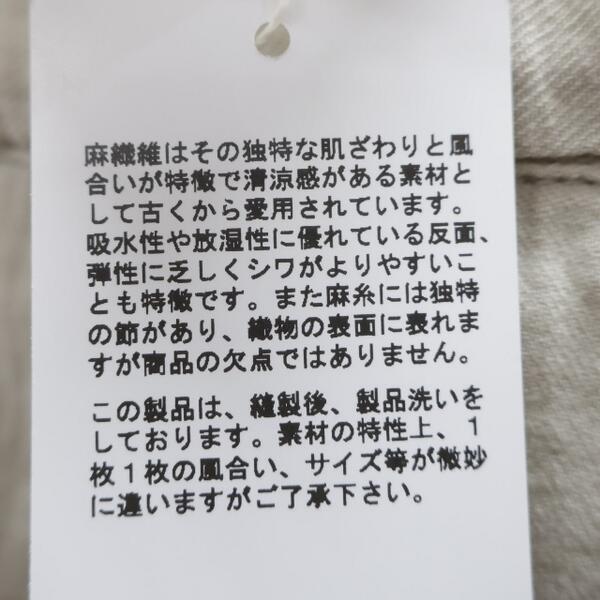 麻繊維はその独特な肌ざわりと風
合いが特徴で清涼感がある素材と
して古くから愛用されています。
吸水性や放湿性に優れている反面、
弾性に乏しくシワがよりやすいこ
とも特徴です。また麻糸には独特
の節があり、織物の表面に表れま
すが商品の欠点ではありません。
この製品は、縫製後、製品洗いを
しております。素材の特性上、1
枚1枚の風合い、サイズ等が微妙
に違いますがご了承下さい。